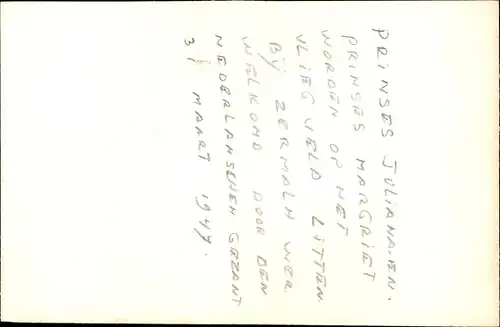 PRINSES JULIANA. EN.
PRINSES MARGRIET
WORDEN OP HET
VLIEGVELD LITTEN
BIJ ZERMALN WER
WELKOMD DOOR DEN
NEDERLANSCHEN GEZANT
31 MAART 1947.